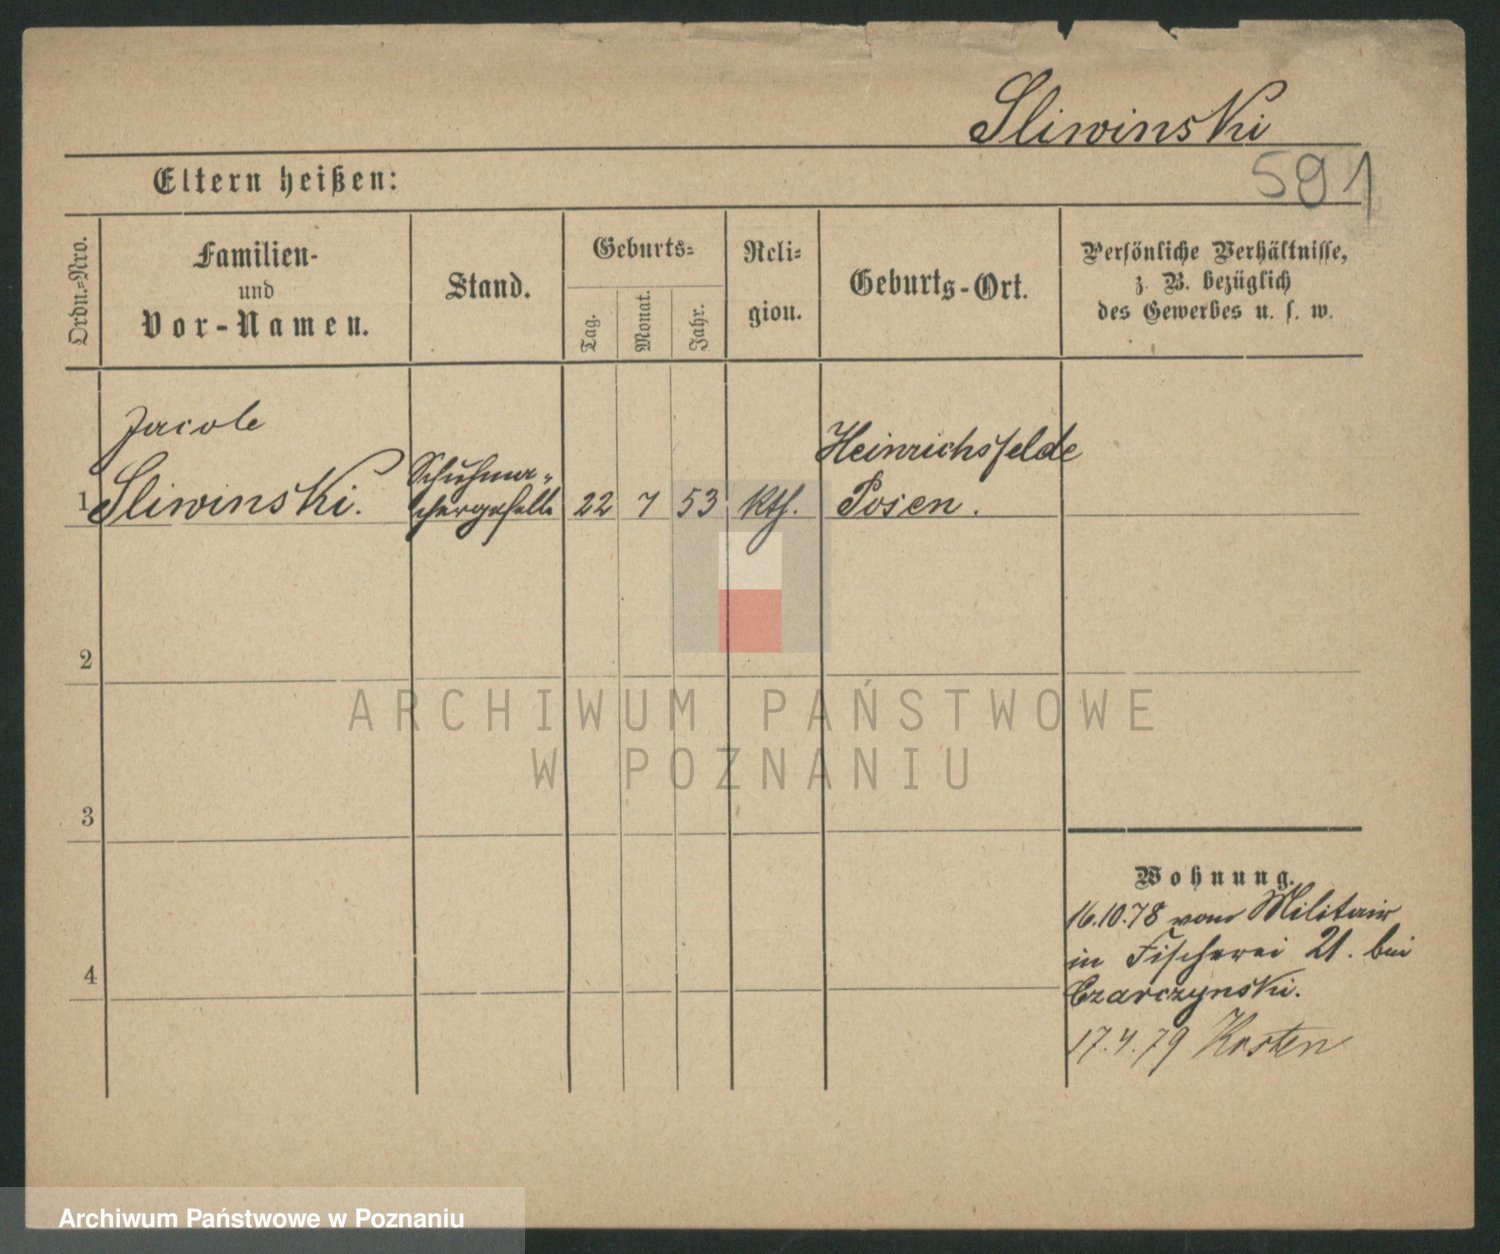 Sliwinski
Eltern heißen:
591
Ordn.-Nro.
Familien-
und
Vor-Namen.
Stand.
Geburts-
Tag.
Monat.
Jahr.
Reli-
gion.
Geburts-Ort.
Persönliche Verhältnisse,
z. B. bezüglich
des Gewerbes u. s. w.
1
Jacob
Sliwinski.
Schuhma-
chergeselle
22
7
53
kth.
Heinrichsfelde
Posen.
2
3
4
Wohnung.
16.10.78 vom Militair
in Fischerei 21. bei
Czarczynski.
17.4.79 Kosten
ARCHIWUM PAŃSTWOWE
W POZNANIU
Archiwum Państwowe w Poznaniu